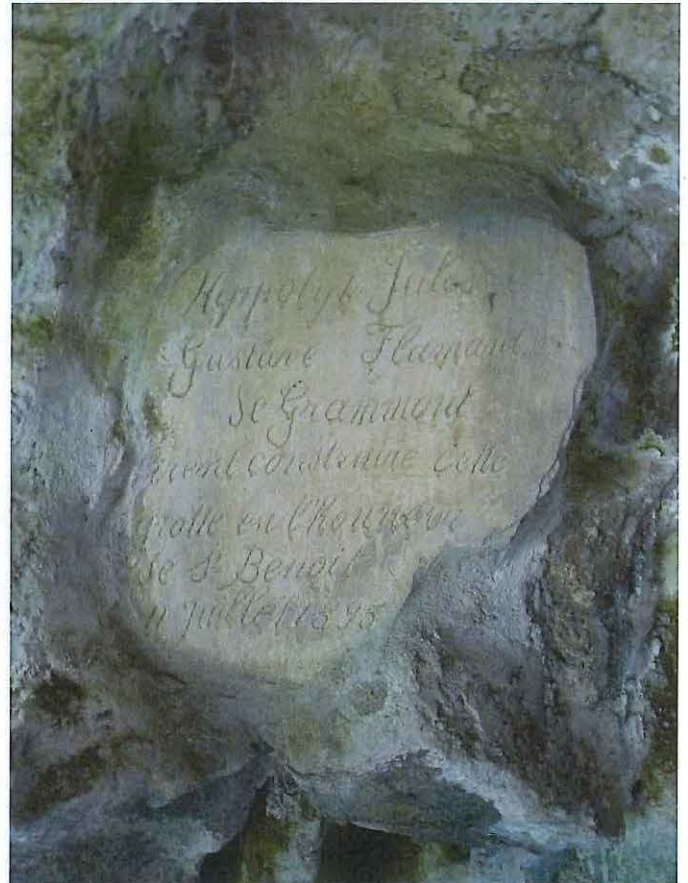 Hyppolyte Jules,
Gustave Flamant
de Grammont
firent construire cette
grotte en l'Honneur
de St Benoit
11 Juillet 1895